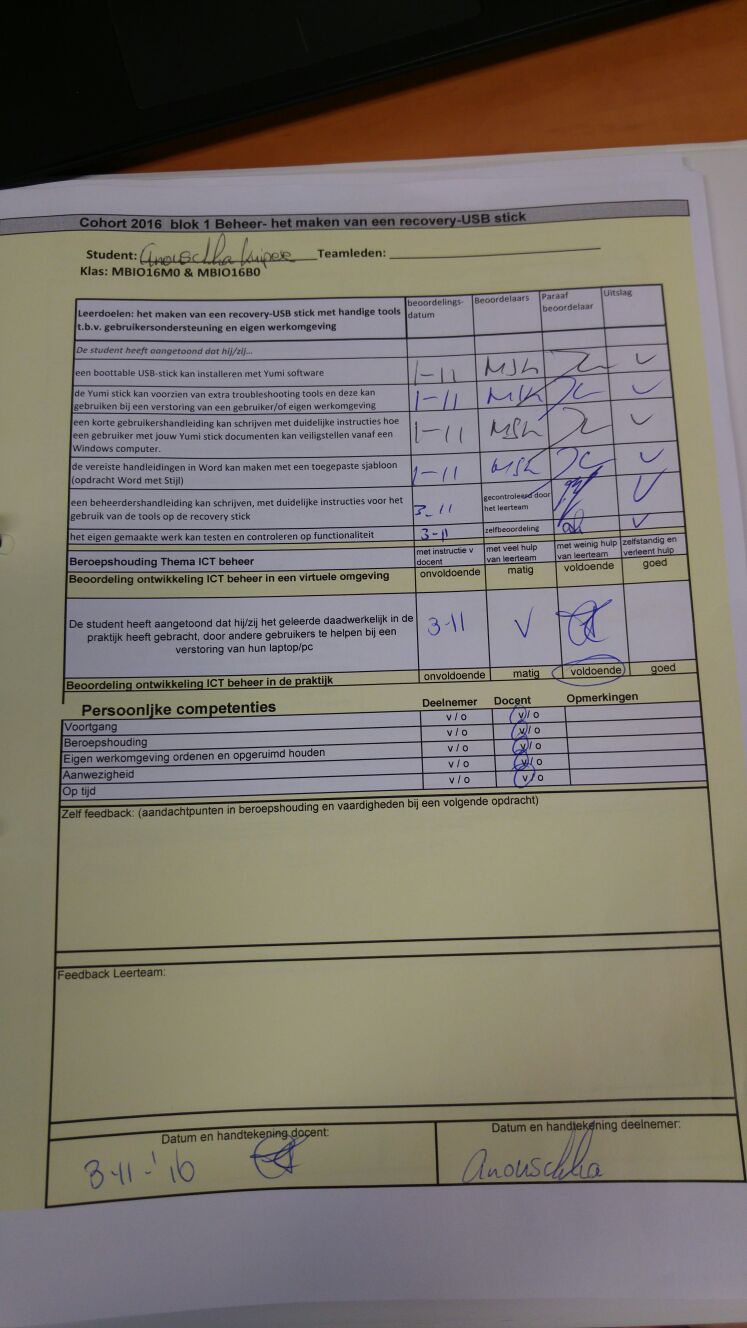 Cohort 2016 blok 1 Beheer- het maken van een recovery-USB stick
Student: Anouschka Kuipers Teamleden:
Klas: MBIO16M0 & MBIO16B0
Leerdoelen: het maken van een recovery-USB stick met handige tools
t.b.v. gebruikersondersteuning en eigen werkomgeving
beoordelings-
datum
Beoordelaars
Paraaf
beoordelaar
Uitslag
De student heeft aangetoond dat hij/zij...
een boottable USB-stick kan installeren met Yumi software 1-11 V
de Yumi stick kan voorzien van extra troubleshooting tools en deze kan
gebruiken bij een verstoring van een gebruiker/of eigen werkomgeving 1-11 V
een korte gebruikershandleiding kan schrijven met duidelijke instructies hoe
een gebruiker met jouw Yumi stick documenten kan veiligstellen vanaf een
Windows computer. 1-11 V
de vereiste handleidingen in Word kan maken met een toegepaste sjabloon
(opdracht Word met Stijl) 1-11 V
een beheerdershandleiding kan schrijven, met duidelijke instructies voor het
gebruik van de tools op de recovery stick 3-11
gecontroleerd door
het leerteam
V
het eigen gemaakte werk kan testen en controleren op functionaliteit 3-11 zelfbeoordeling V
Beroepshouding Thema ICT beheer
met instructie v
docent
met veel hulp
van leerteam
met weinig hulp
van leerteam
zelfstandig en
verleent hulp
Beoordeling ontwikkeling ICT beheer in een virtuele omgeving onvoldoende matig voldoende goed
De student heeft aangetoond dat hij/zij het geleerde daadwerkelijk in de
praktijk heeft gebracht, door andere gebruikers te helpen bij een
verstoring van hun laptop/pc
3-11 V
Beoordeling ontwikkeling ICT beheer in de praktijk onvoldoende matig voldoende goed
Persoonljke competenties Deelnemer Docent Opmerkingen
Voortgang v / o v / o
Beroepshouding v / o v / o
Eigen werkomgeving ordenen en opgeruimd houden v / o v / o
Aanwezigheid v / o v / o
Op tijd v / o v / o
Zelf feedback: (aandachtpunten in beroepshouding en vaardigheden bij een volgende opdracht)
Feedback Leerteam:
Datum en handtekening docent:
3-11-'16
Datum en handtekening deelnemer:
Anouschka